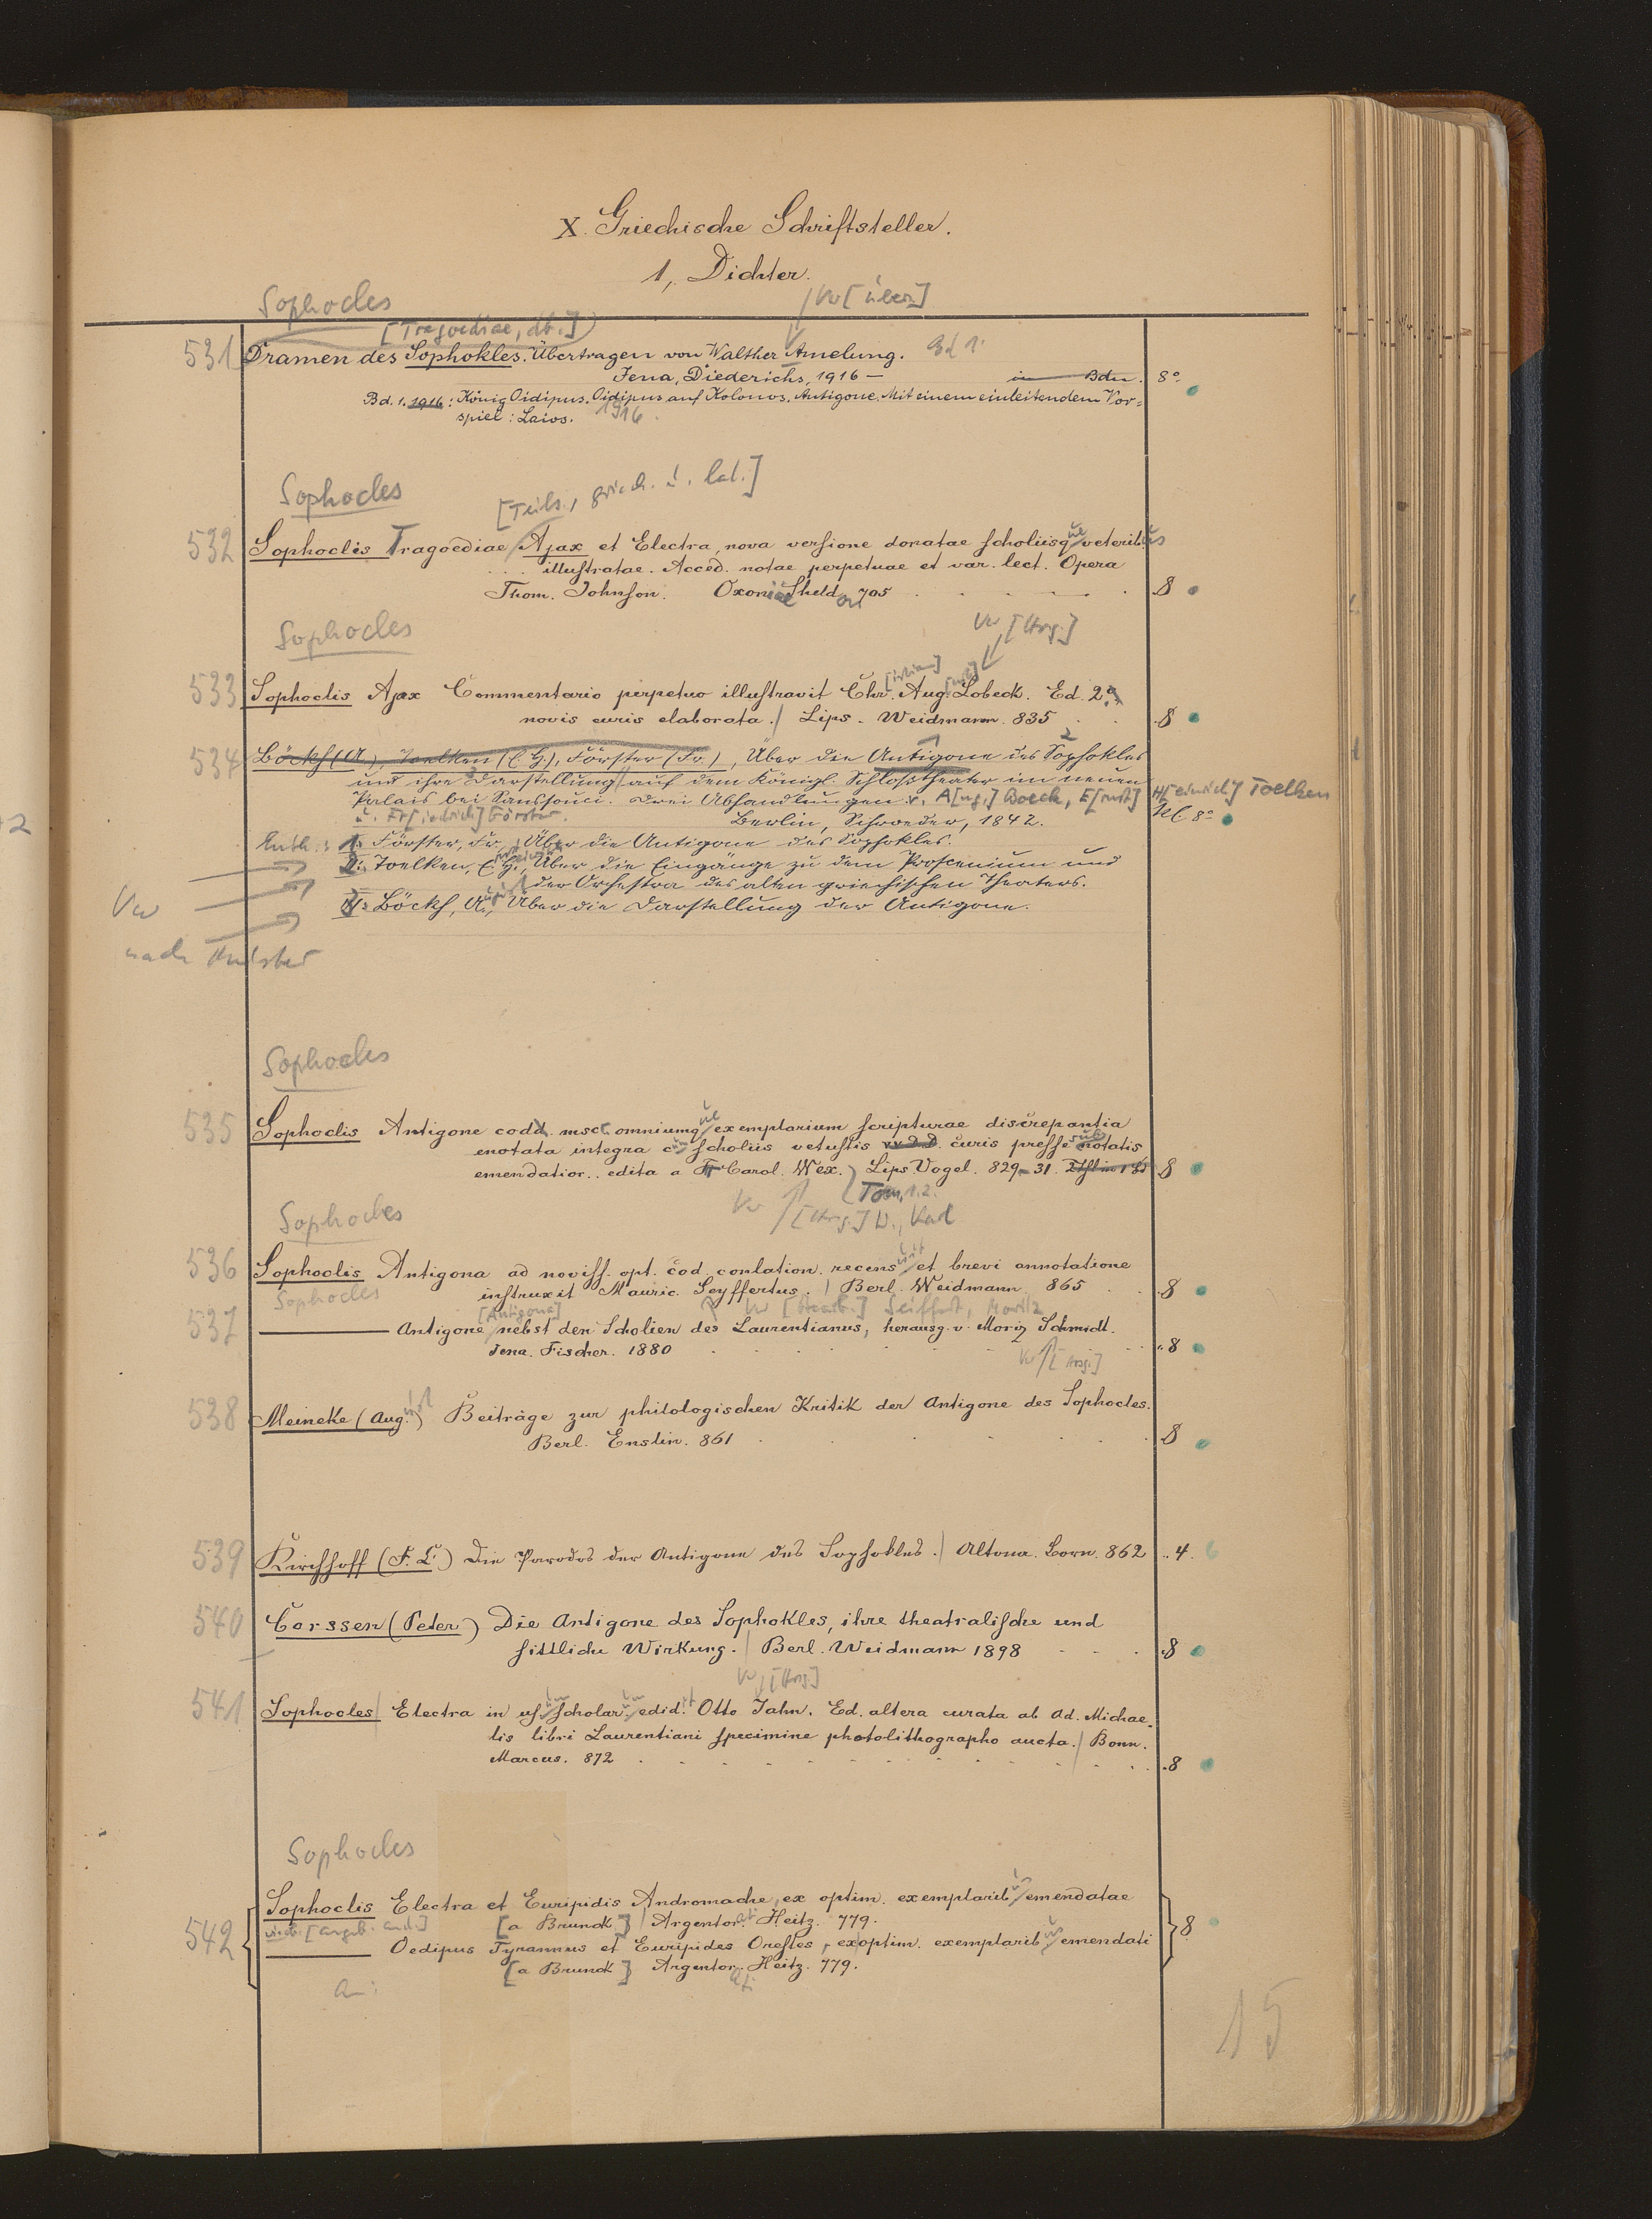 X. Griechische Schriftsteller.
1, Dichter.
Sophocles
Vw [Übers.]
[Tragoediae, dt.]
531 Dramen des Sophokles. Übertragen von Walther Amelung. Bd 1.
Jena, Diederichs, 1916 — in Bdn. 8°
Bd. 1. 1916: König Oidipus. Oidipus auf Kolonos. Antigone. Mit einem einleitendem Vor=
spiel: Laios. 1916.
Sophocles
[Teils., griech. u. lat.]
532 Sophoclis Tragoediae Ajax et Electra, nova versione donatae scholiisque veteribus
illustratae. Acced. notae perpetuae et var. lect. Opera
Thom. Johnson. Oxoniae Sheldon 705 8
Sophocles
Vw [Hrsg.]
533 Sophoclis Ajax Commentario perpetuo illustravit Chr[istian]. Aug[ust]. Lobeck. Ed. 2a
novis curis elaborata. / Lips. Weidmann. 835 8
534 Böckh (A.), Toelken (E. H.), Förster (Fr.), Über die Antigone des Sophokles
und ihre Darstellung auf dem Königl. Schloßtheater im neuen
Palais bei Sanssouci. Drei Abhandlungen v. A[ug.] Boeck, E[rnst] H[einrich] Toelken
u. Fr[iedrich] Förster. Berlin, Schroeder, 1842. Kl 8°
Enth.: 1. Förster, Fr., Über die Antigone des Sophokles.
2. Toelken, E. H., Über die Eingänge zu dem Proscenium und
der Orchestra des alten griechischen Theaters.
3. Böckh, August, Über die Darstellung der Antigone.
Vw
nach
Sophocles
535 Sophoclis Antigone codd. mscc. omniumque exemplarium scripturae discrepantia
enotata integra cum scholiis vetustis vv. D. D. curis presse subnotatis
emendatior.. edita a Fr Carol. Wex. ) Lips. Vogel. 829-31. 8
Tom. 1.2.
Vw [Hrsg.] W., Karl
Sophocles
536 Sophoclis Antigona ad noviss. opt. cod. conlation. recensuit et brevi annotatione
instruxit Mauric. Seyffertus. / Berl. Weidmann. 865 8
Sophocles
[Antigona] Vw [Bearb.] Seiffert, Moritz
537 ——— Antigone nebst den Scholien des Laurentianus, herausg. v. Moriz Schmidt.
Jena. Fischer. 1880 8
Vw [Hrsg.]
538 Meineke (August) Beiträge zur philologischen Kritik der Antigone des Sophocles.
Berl. Enslin. 861 8
539 Kirchhoff (F. C.) Die Parodos der Antigone des Sophokles. / Altona. Born. 862 4
540 Corssen (Peter) Die Antigone des Sophokles, ihre theatralische und
sittliche Wirkung. / Berl. Weidmann 1898 8
Vw [Hrsg.]
541 Sophocles / Electra in usum scholarum edidit Otto Jahn. Ed. altera curata ab Ad. Michae-
lis libri Laurentiani specimine photolithographo aucta. / Bonn.
Marcus. 872 8
Sophocles
542 Sophoclis Electra et Euripidis Andromache, ex optim. exemplaribus emendatae
[a Brunck] / Argentorati Heitz. 779. 8
——— Oedipus Tyrannus et Euripides Orestes, ex optim. exemplaribus emendati
[a Brunck] Argentorati Heitz. 779.
15